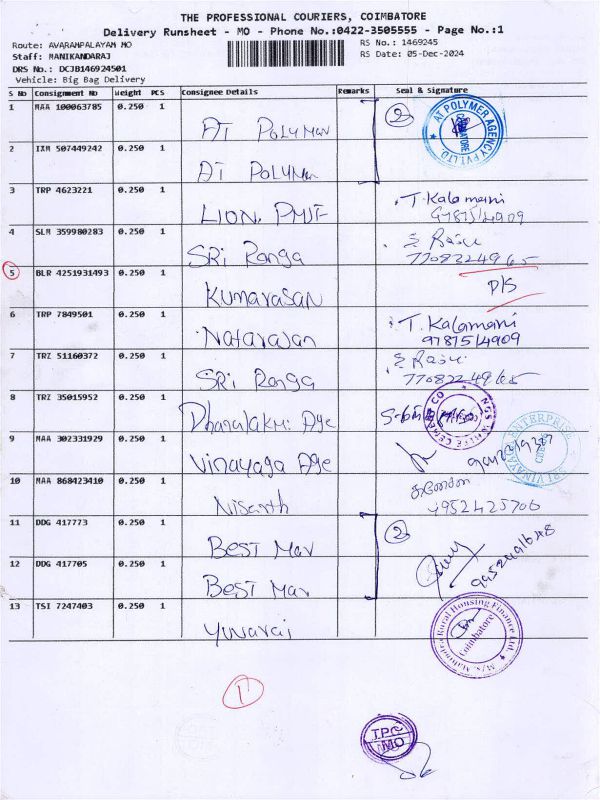 THE PROFESSIONAL COURIERS, COIMBATORE
Delivery Runsheet - MO - Phone No.:0422-3505555 - Page No.:1
Route: AVARAMPALAYAM MO RS No.: 1469245
Staff: MANIKANDARAJ RS Date: 05-Dec-2024
DRS No.: DCJB146924501
Vehicle: Big Bag Delivery
S No Consignment No Weight PCS Consignee Details Remarks Seal & signature
1 MAA 100063785 0.250 1 AT Polymar 2 AT POLYMER AGENCY PVT LTD COIMBATORE
2 IXM 507449242 0.250 1 AT Polymar
3 TRP 4623221 0.250 1 LION. PMJF T. Kalamani
4 SLM 359980283 0.250 1 SRI Ranga S Raju 7708224965
5 BLR 4251931493 0.250 1 Kumarasan D/S
6 TRP 7849501 0.250 1 Natarajan T. Kalamani 9787514909
7 TRZ 51160372 0.250 1 SRI Ranga S Raju 7708224965
8 TRZ 35015952 0.250 1 Dhanalakmi Age
9 MAA 302331929 0.250 1 Vinayaga Age SRI VINAYAGA ENTERPRISE
10 MAA 868423410 0.250 1 Nisanth
11 DDG 417773 0.250 1 BEST Mar 2
12 DDG 417705 0.250 1 BEST Mar
13 TSI 7247403 0.250 1 Yuvaraj M/s. Mahindra Rural Housing Finance Ltd. Coimbatore
1
TPC
MO